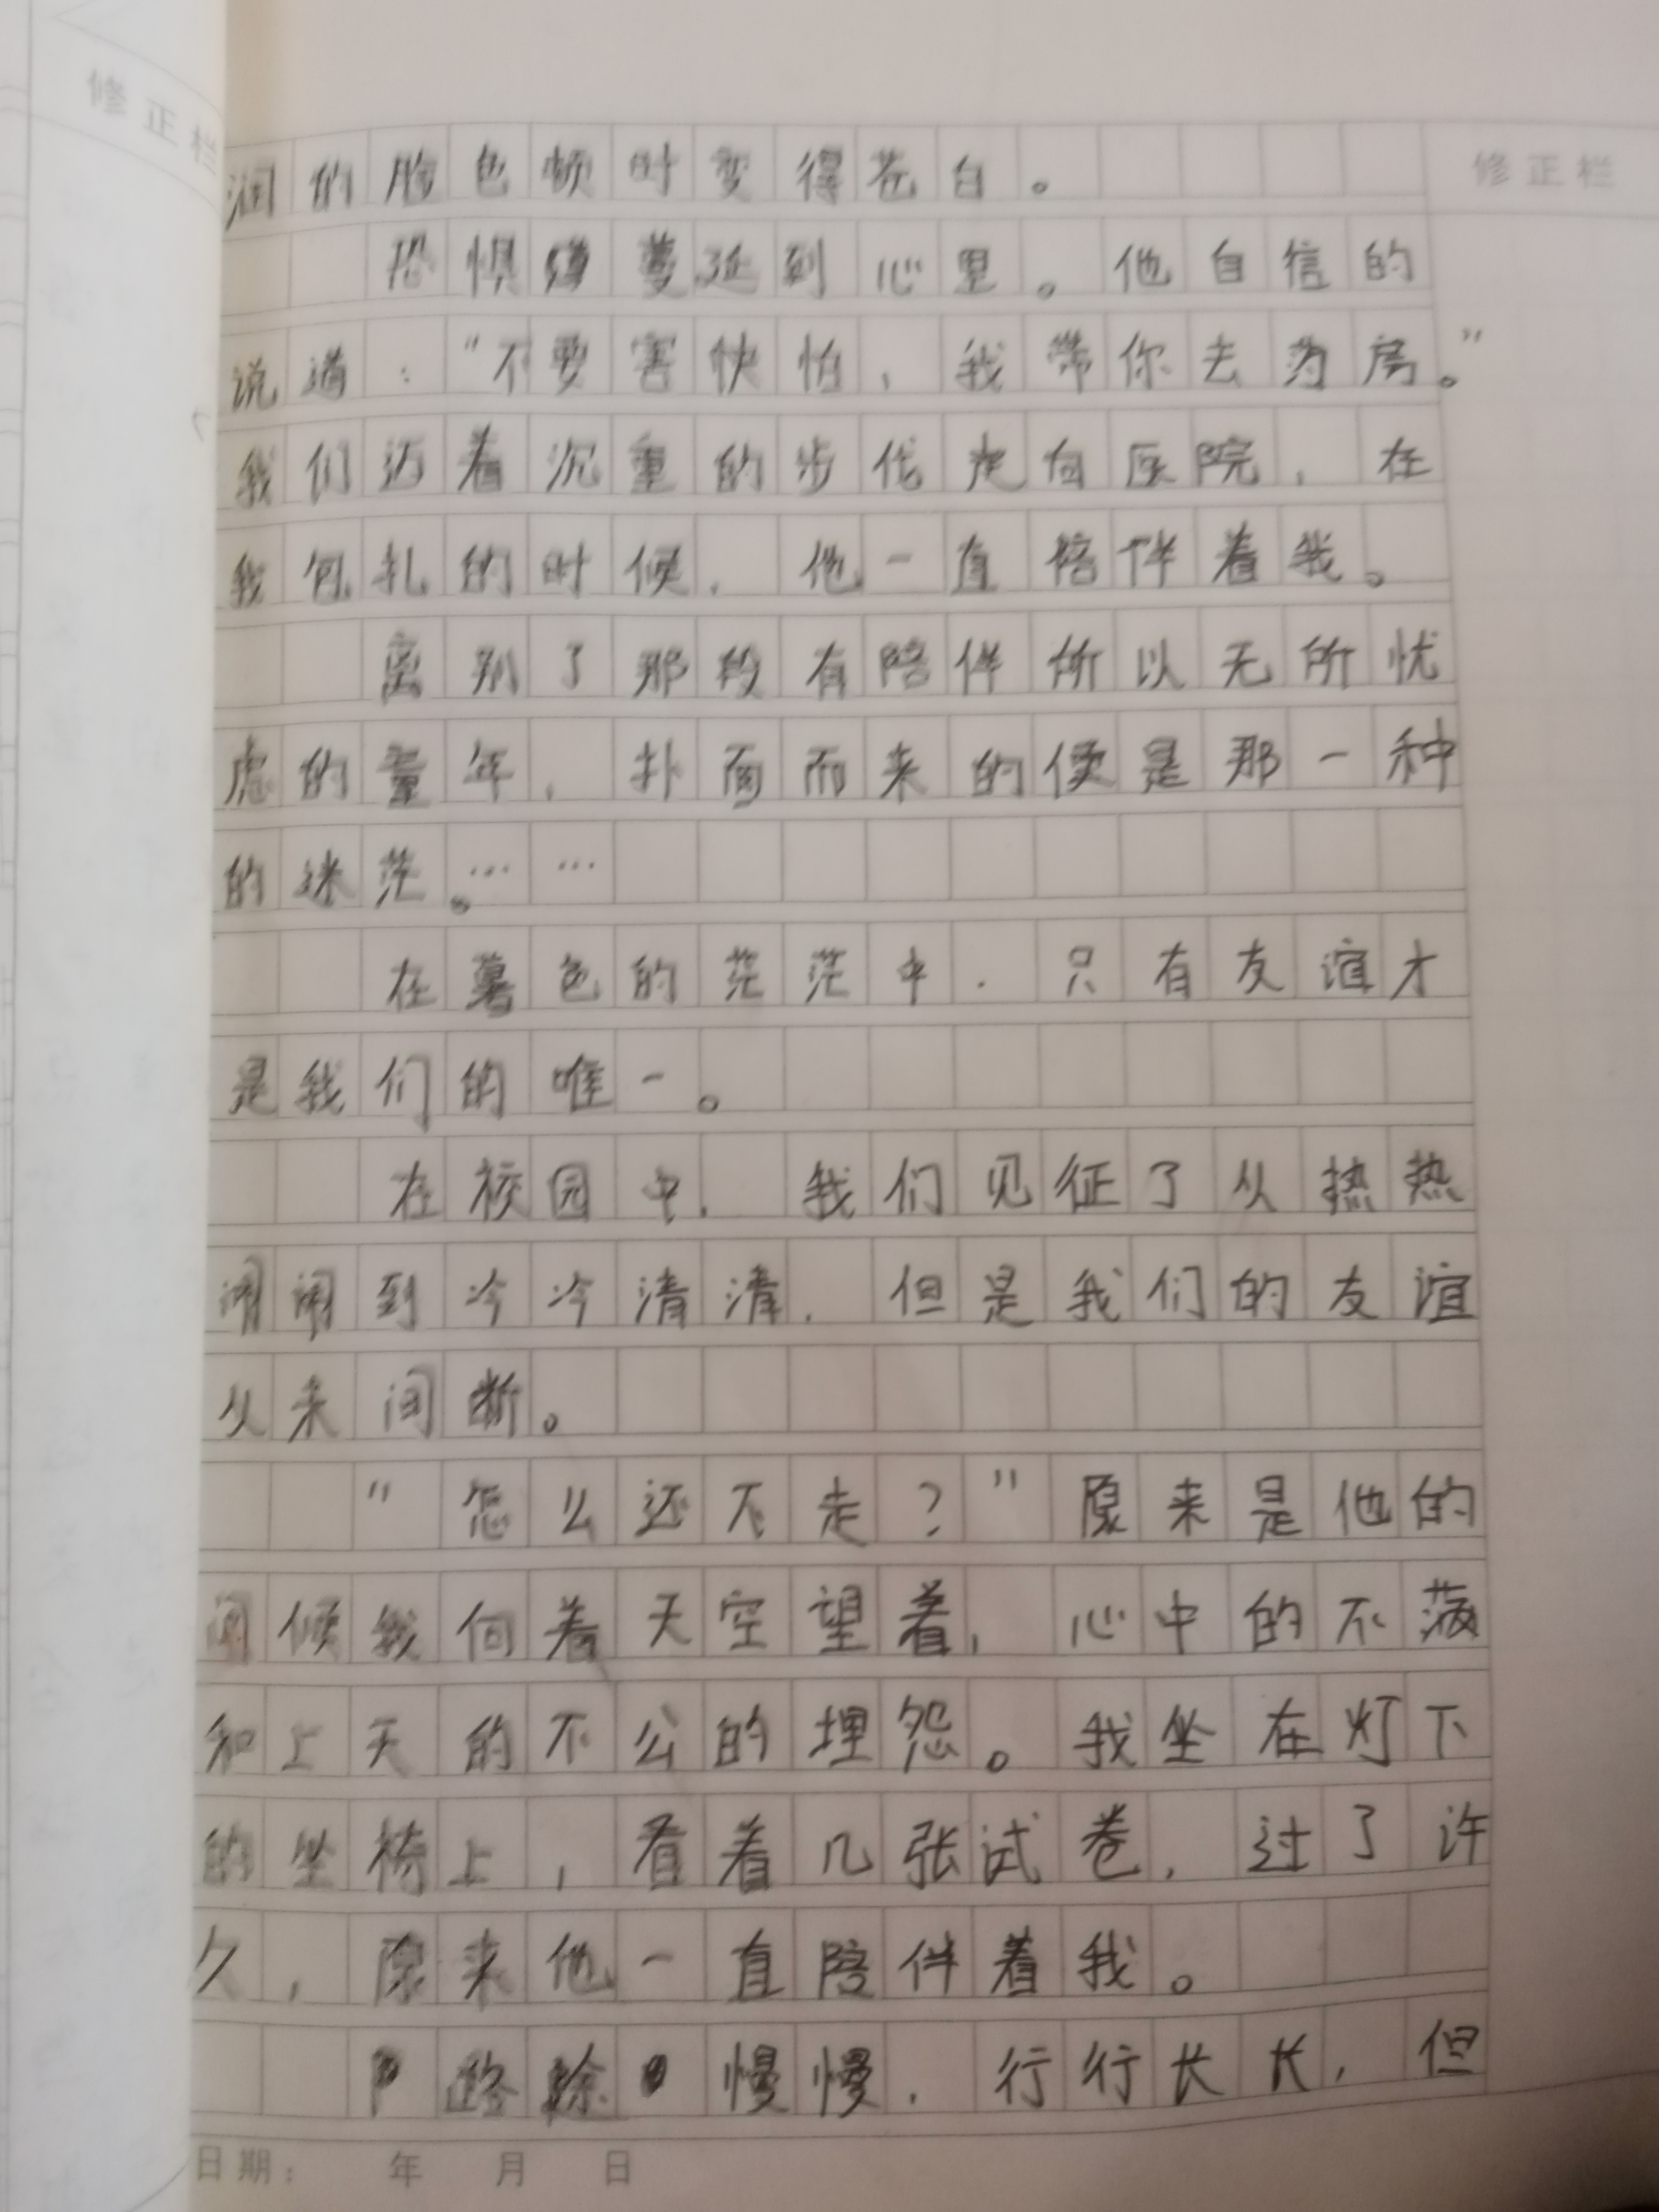 修正栏
修正栏
润的脸色顿时变得苍白。
恐惧蔓延到心里。他自信的
说道:“不要害快怕,我带你去为房。”
我们迈着沉重的步伐走向医院,在
我包扎的时候,他一直陪伴着我。
离别了那段有陪伴所以无所忧
虑的童年,扑面而来的便是那一种
的迷茫。……
在暮色的茫茫中,只有友谊才
是我们的唯一。
在校园中,我们见征了从热热
闹闹到冷冷清清,但是我们的友谊
从未间断。
“怎么还不走?”原来是他的
问候我向着天空望着,心中的不满
和上天的不公的埋怨。我坐在灯下
的坐椅上,看着几张试卷,过了许
久,原来他一直陪伴着我。
路途慢慢,行行长长,但
日期: 年 月 日